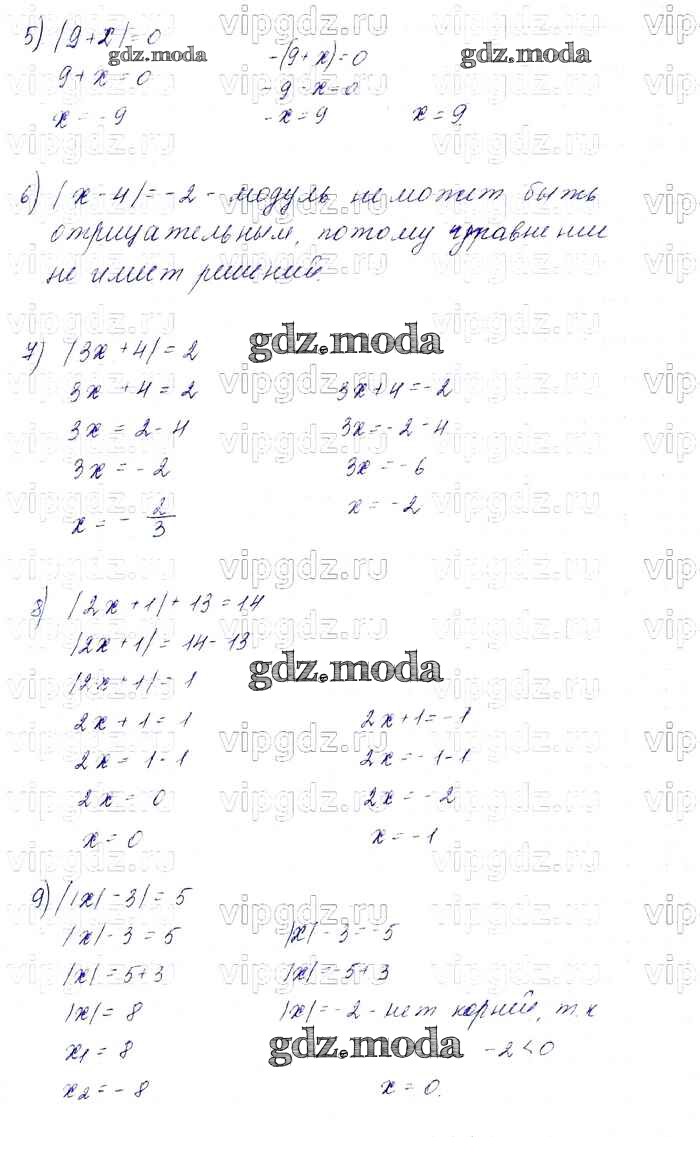 5) |9+x|=0
9+x=0 -(9+x)=0
-9-x=0
x=-9 -x=9 x=9
6) |x-4|=-2 - модуль не может быть
отрицательным, потому уравнение
не имеет решений.
7) |3x+4|=2
3x+4=2 3x+4=-2
3x=2-4 3x=-2-4
3x=-2 3x=-6
x=-2/3 x=-2
8) |2x+1|+13=14
|2x+1|=14-13
|2x+1|=1
2x+1=1 2x+1=-1
2x=1-1 2x=-1-1
2x=0 2x=-2
x=0 x=-1
9) ||x|-3|=5
|x|-3=5 |x|-3=-5
|x|=5+3 |x|=-5+3
|x|=8 |x|=-2 - нет корней, т.к
x1=8 -2<0
x2=-8 x=0.
gdz.moda
vipgdz.ru